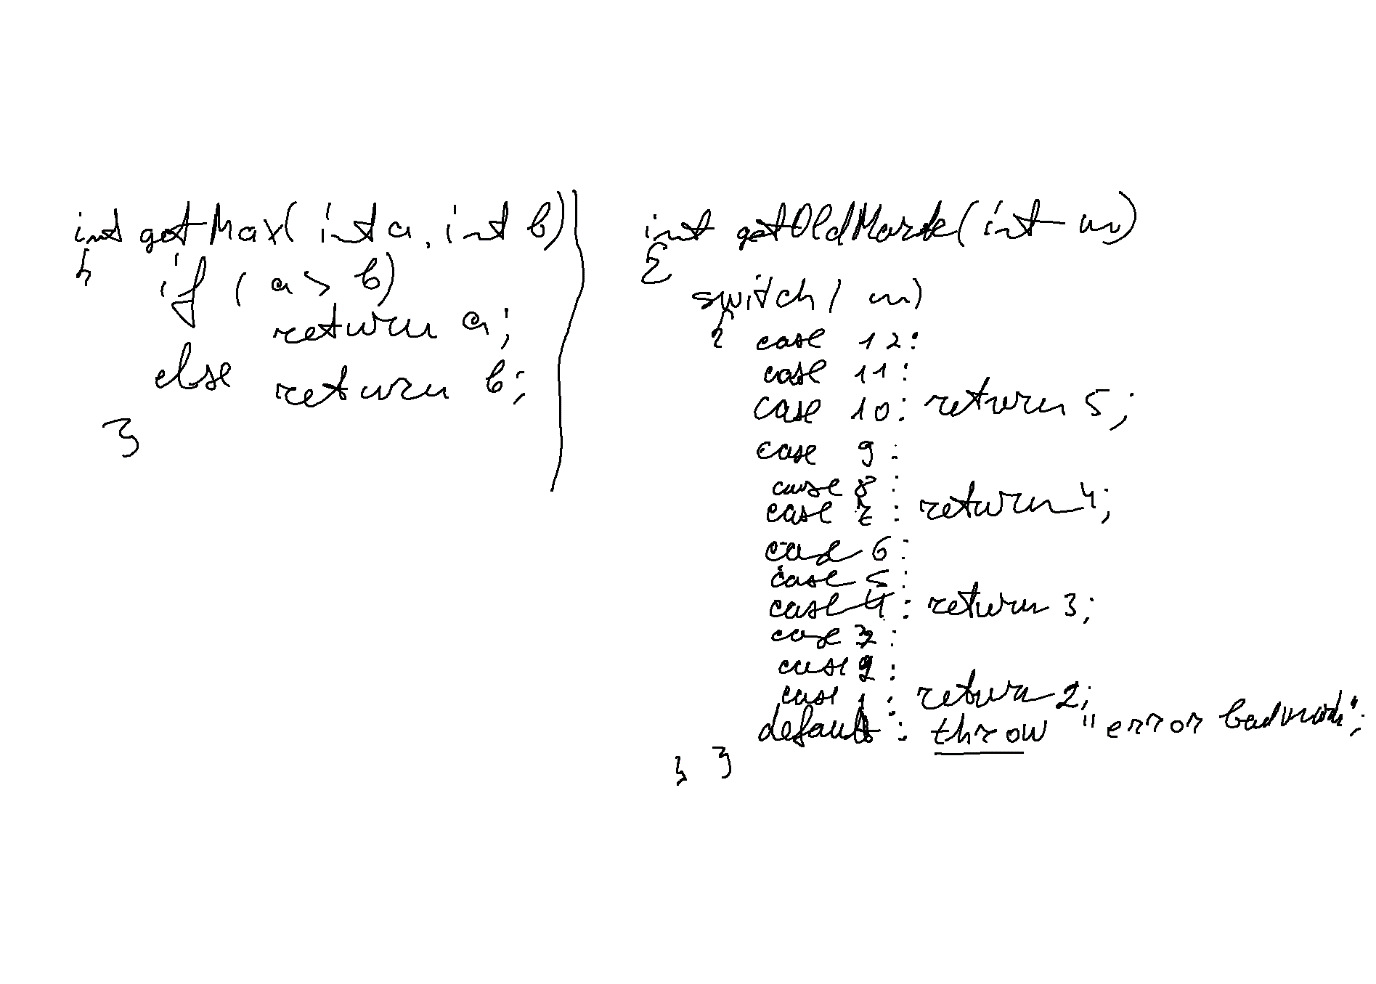 int getMax( int a, int b)
{
if ( a > b)
return a;
else return b;
}
int getOldMark(int m)
{
switch( m)
{ case 12:
case 11:
case 10: return 5;
case 9:
case 8:
case 7: return 4;
case 6:
case 5:
case 4: return 3;
case 3:
case 2:
case 1: return 2;
default: throw "error bad mark";
} }